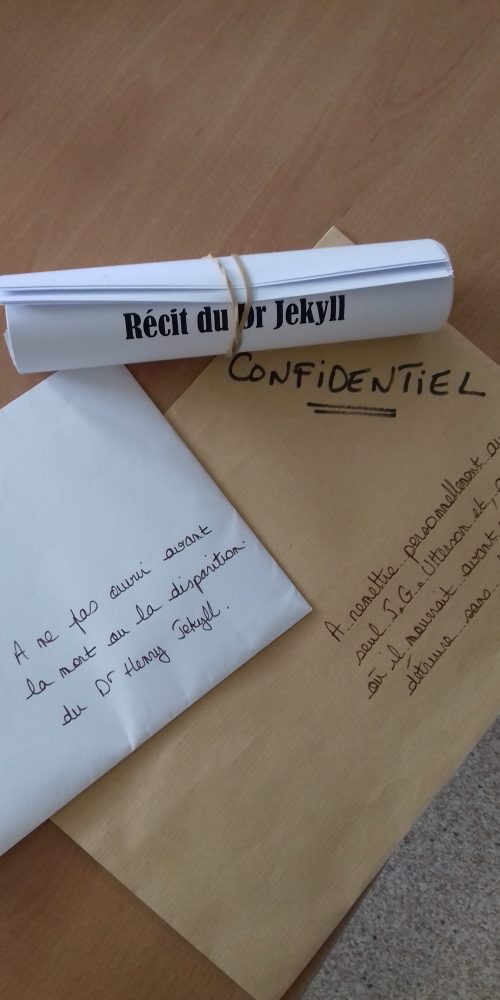 Récit du Dr Jekyll
CONFIDENTIEL
A remettre personnellement
seul J.G. Utterson et
où il mourrait avant
détruire sans
A ne pas ouvrir avant
la mort ou la disparition
du Dr Henry Jekyll.